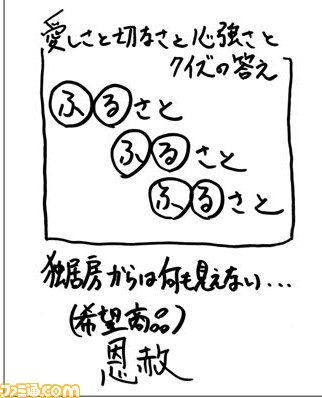 愛しさと切なさと心強さと
クイズの答え
ふるさと
ふるさと
ふるさと
独居房からは何も見えない...
(希望商品)
恩赦
ファミ通.com